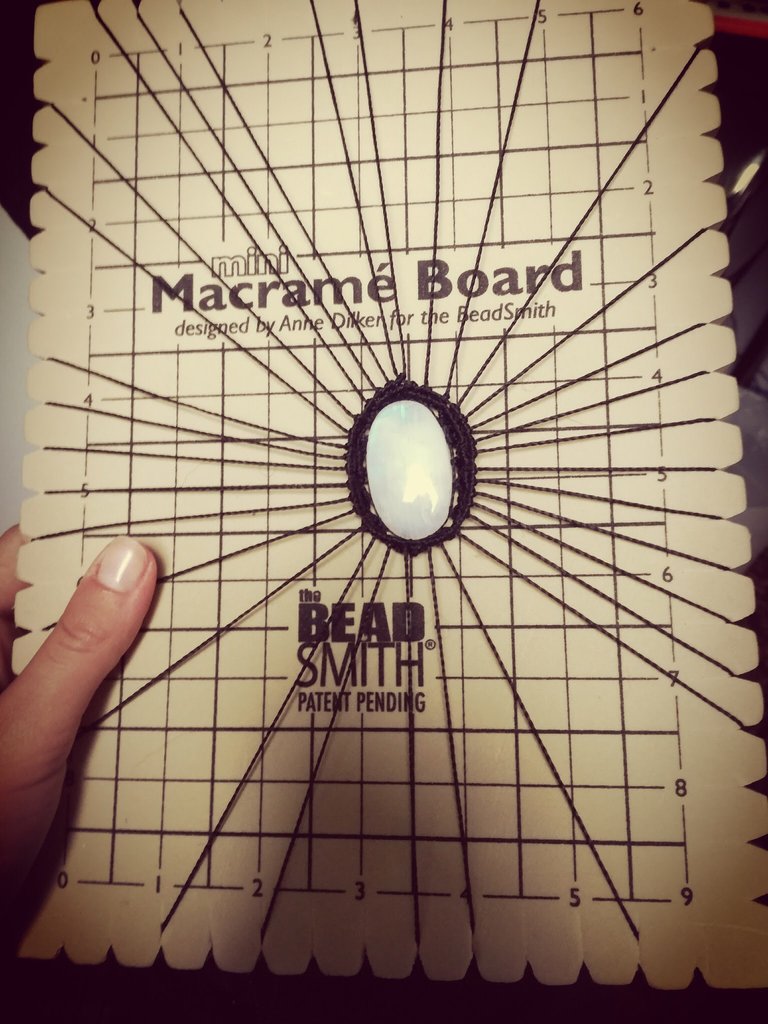 0 1 2 3 4 5 6
mini
Macramé Board
designed by Anne Dilker for the BeadSmith
2
2
3
3
4
4
5
5
6
the
BEAD
SMITH®
PATENT PENDING
7
8
0 1 2 3 4 5 9